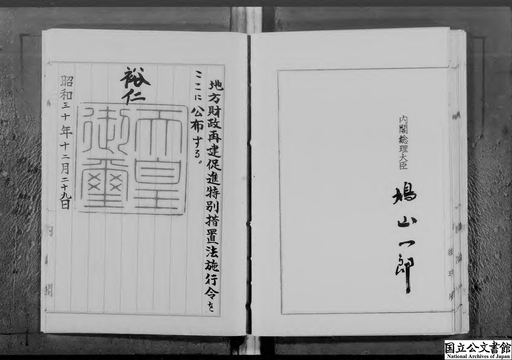 地方財政再建促進特別措置法施行令を
ここに公布する。
裕仁
天皇
御璽
昭和三十年十二月二十九日
内閣総理大臣
鳩山一郎
国立公文書館
National Archives of Japan